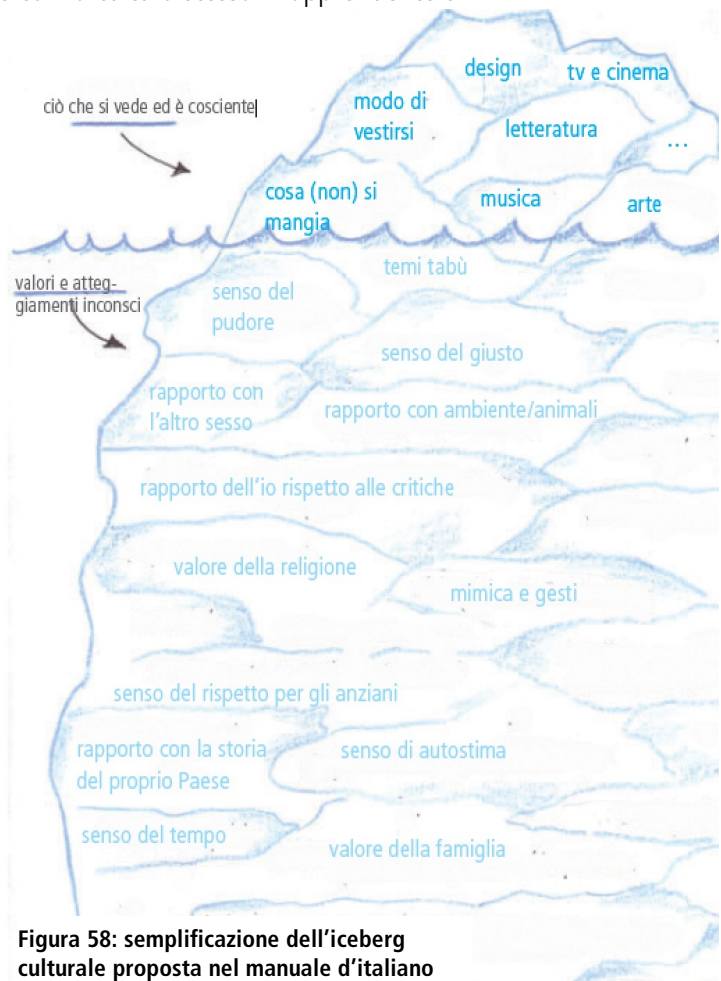 design
tv e cinema
ciò che si vede ed è cosciente
modo di
vestirsi
letteratura
...
cosa (non) si
mangia
musica
arte
temi tabù
valori e atteg-
giamenti inconsci
senso del
pudore
senso del giusto
rapporto con
l'altro sesso
rapporto con ambiente/animali
rapporto dell'io rispetto alle critiche
valore della religione
mimica e gesti
senso del rispetto per gli anziani
rapporto con la storia
del proprio Paese
senso di autostima
senso del tempo
valore della famiglia
Figura 58: semplificazione dell'iceberg
culturale proposta nel manuale d'italiano